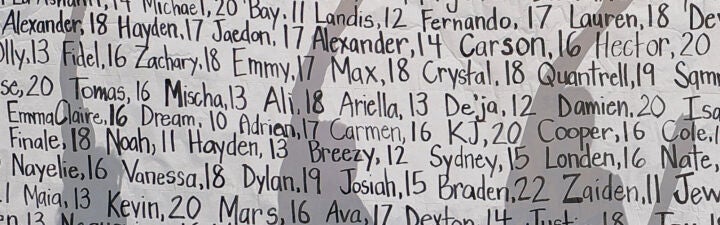 Michael, 20 Bay, 11 Landis, 12 Fernando, 17 Lauren, 18
Alexander, 18 Hayden, 17 Jaedon, 17 Alexander, 14 Carson, 16 Hector, 20
olly, 13 Fidel, 16 Zachary, 18 Emmy, 17 Max, 18 Crystal, 18 Quantrell, 19 Sam
se, 20 Tomas, 16 Mischa, 13 Ali, 18 Ariella, 13 De'ja, 12 Damien, 20 Isa
EmmaClaire, 16 Dream, 10 Adrian, 17 Carmen, 16 KJ, 20 Cooper, 16 Cole, 1
Finale, 18 Noah, 11 Hayden, 13 Breezy, 12 Sydney, 15 Londen, 16 Nate,
Nayelie, 16 Vanessa, 18 Dylan, 19 Josiah, 15 Braden, 22 Zaiden, 11 Jew
11 Maia, 13 Kevin, 20 Mars, 16 Ava, 17 Deyton, 14